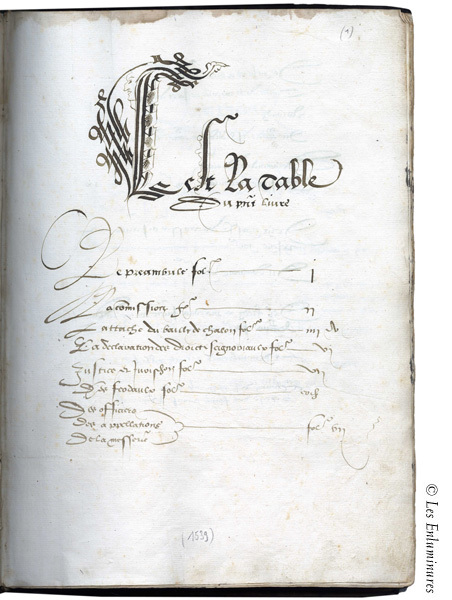 (1)
C'est la table
Du pnt livre
Le preambule fol. j
La comission fol. ii
Lattache du bailli de chalon fol. iiii
La declaration des droictz seigneuriaulx fol. vi
Justice et fol. vii
fiefz feodaulx fol.
Des officiers
Des appellations fol. vii
De la messerie
(1539)
© Les Enluminures